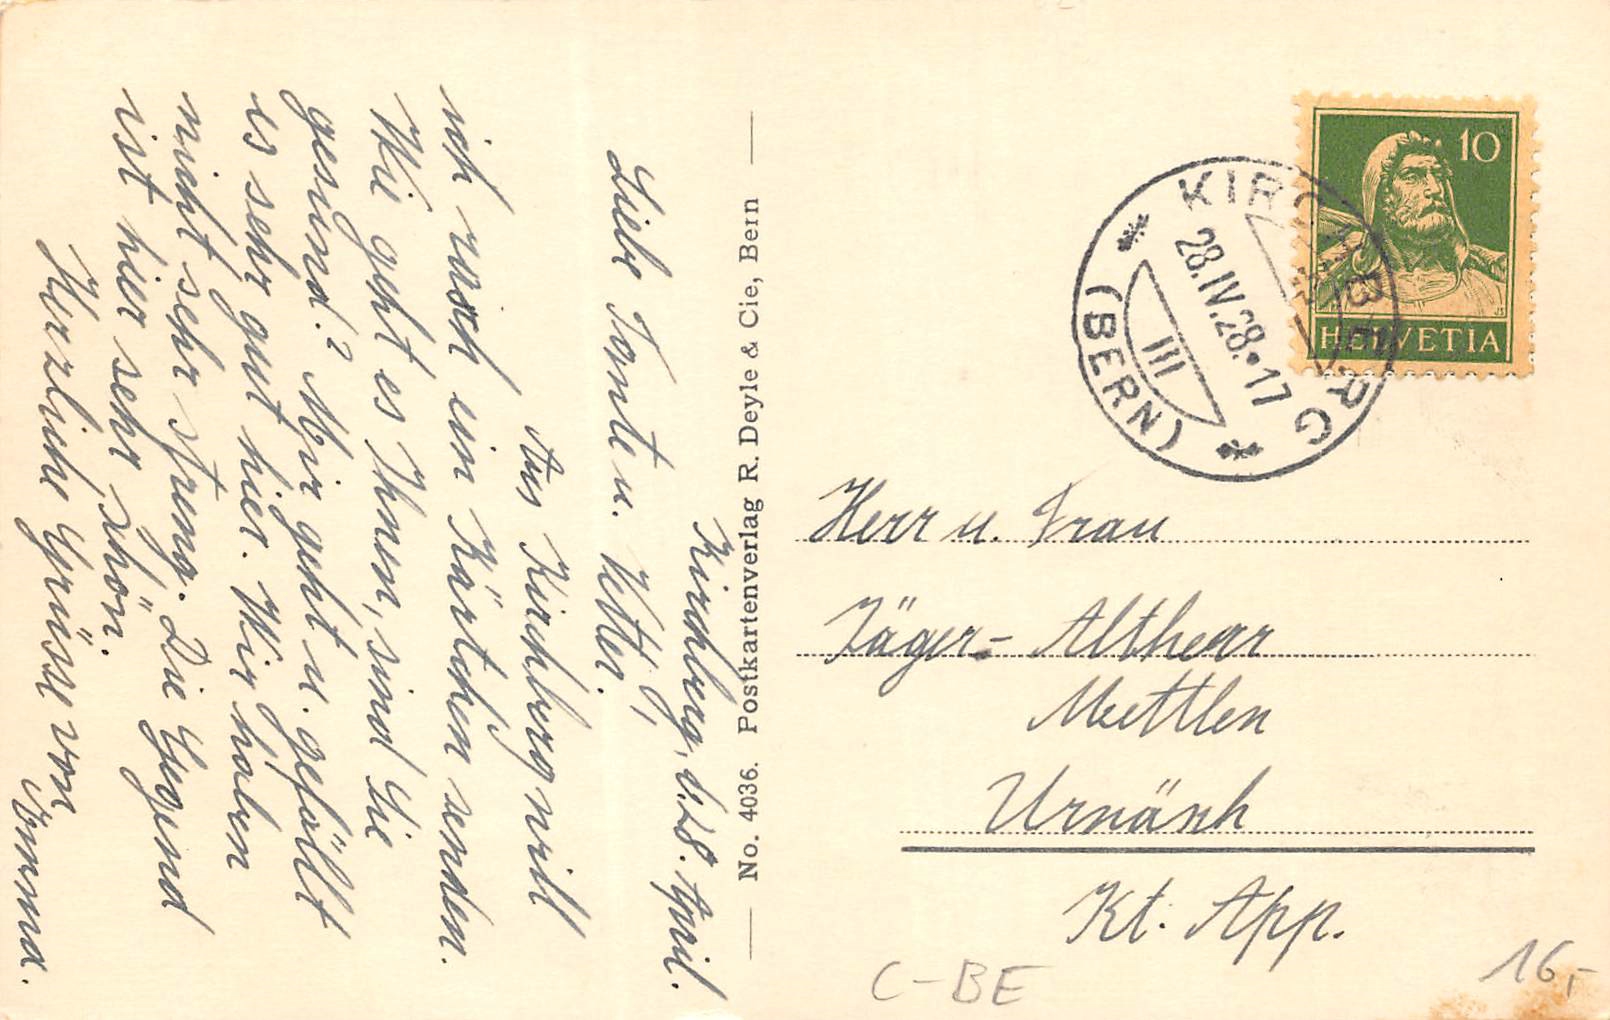 Kirchberg, d. 28. April.
Liebe Tante u. Vetter!
Aus Kirchberg will
ich rasch ein Kärtchen senden.
Wie geht es Ihnen, sind Sie
gesund? Mir geht u. gefällt
es sehr gut hier. Wir haben
nicht sehr streng. Die Gegend
ist hier sehr schön.
Herzliche Grüsse von
Emma.
No. 4036. Postkartenverlag R. Deyle & Cie, Bern
10
HELVETIA
KIRCHBERG
28.IV.28.17
III
(BERN)
Herr u. Frau
Jäger-Altherr
Mettlen
Urnäsh
Kt. App.
C-BE
16,-